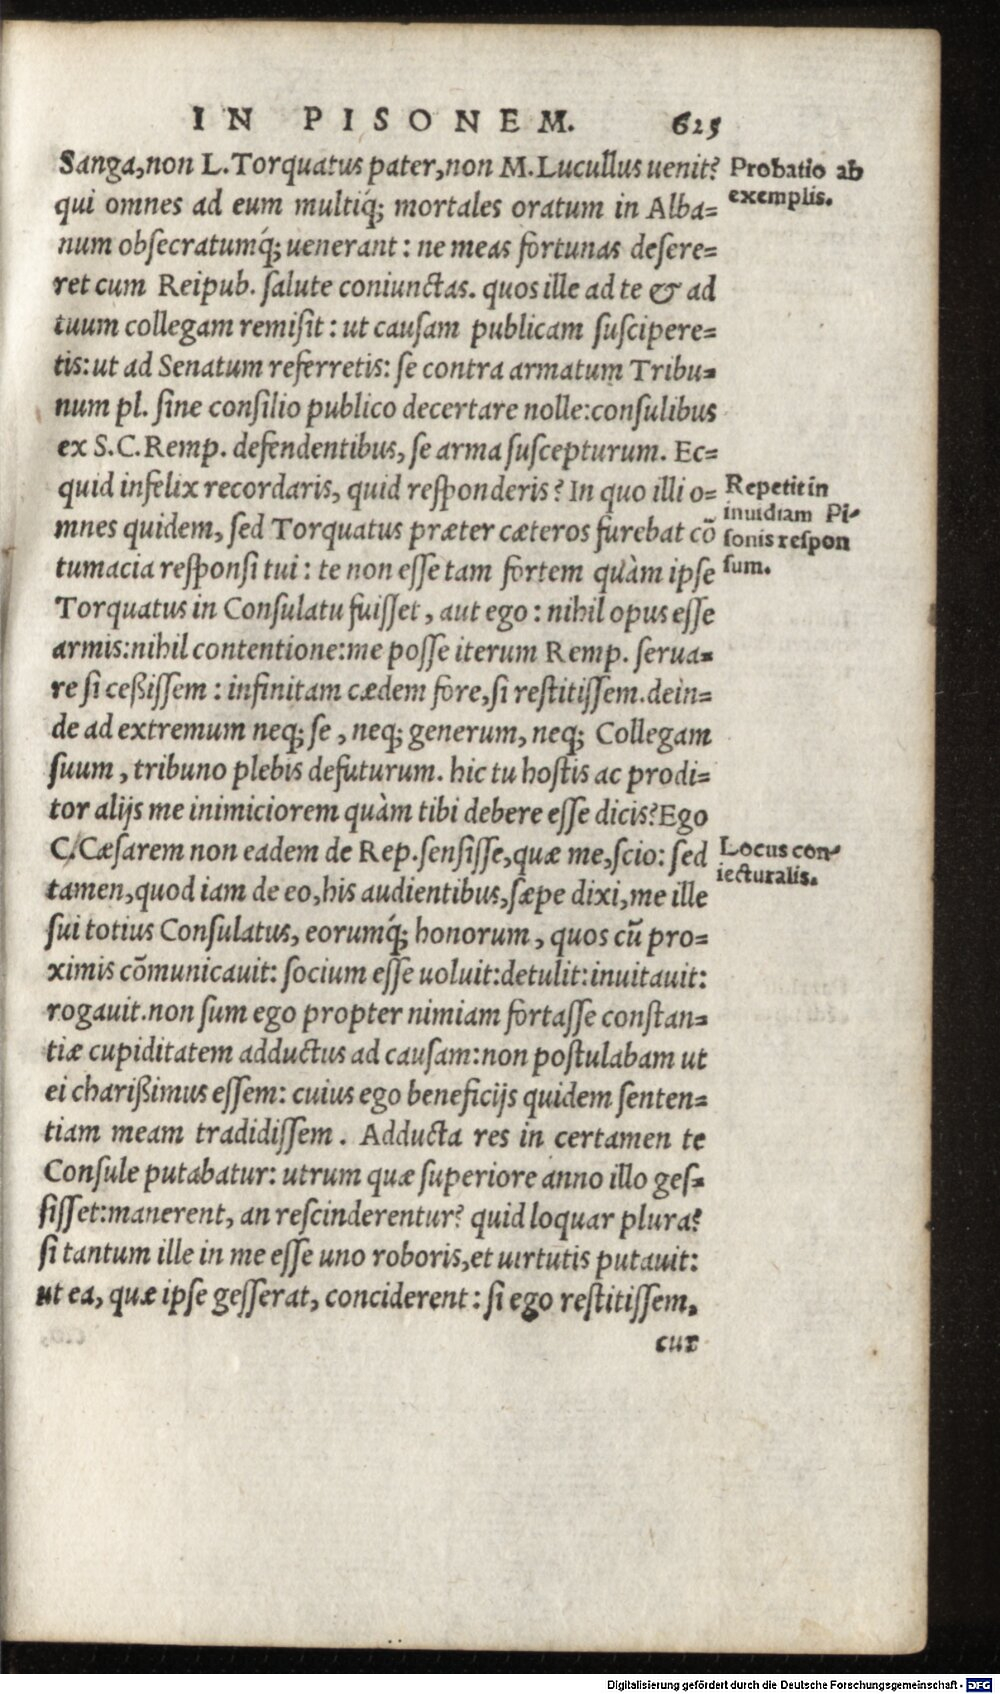 IN PISONEM. 625
Sanga, non L. Torquatus pater, non M. Lucullus uenit?
qui omnes ad eum multiq́; mortales oratum in Alba=
num obsecratumq́; uenerant: ne meas fortunas desere=
ret cum Reipub. salute coniunctas. quos ille ad te & ad
tuum collegam remisit: ut causam publicam suscipere=
tis: ut ad Senatum referretis: se contra armatum Tribu=
num pl. sine consilio publico decertare nolle: consulibus
ex S.C. Remp. defendentibus, se arma suscepturum. Ec=
quid infelix recordaris, quid responderis? In quo illi o=
mnes quidem, sed Torquatus præter cæteros furebat cō
tumacia responsi tui: te non esse tam fortem quàm ipse
Torquatus in Consulatu fuisset, aut ego: nihil opus esse
armis: nihil contentione: me posse iterum Remp. serua=
re si ceßissem: infinitam cædem fore, si restitissem. dein=
de ad extremum neq; se, neq; generum, neq; Collegam
suum, tribuno plebis defuturum. hic tu hostis ac prodi=
tor alijs me inimiciorem quàm tibi debere esse dicis? Ego
C. Cæsarem non eadem de Rep. sensisse, quæ me, scio: sed
tamen, quod iam de eo, his audientibus, sæpe dixi, me ille
sui totius Consulatus, eorumq́; honorum, quos cū pro=
ximis cōmunicauit: socium esse uoluit: detulit: inuitauit:
rogauit. non sum ego propter nimiam fortasse constan=
tiæ cupiditatem adductus ad causam: non postulabam ut
ei charißimus essem: cuius ego beneficijs quidem senten=
tiam meam tradidissem. Adducta res in certamen te
Consule putabatur: utrum quæ superiore anno illo ges=
sisset: manerent, an rescinderentur? quid loquar plura?
si tantum ille in me esse uno roboris, et uirtutis putauit:
ut ea, quæ ipse gesserat, conciderent: si ego restitissem,
cur
Probatio ab
exemplis.
Repetit in
inuidiam Pi-
sonis respon
sum.
Locus con-
iecturalis.
Digitalisierung gefördert durch die Deutsche Forschungsgemeinschaft - DFG